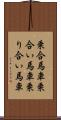 乗合馬車乗
合い馬車乗
り合い馬車